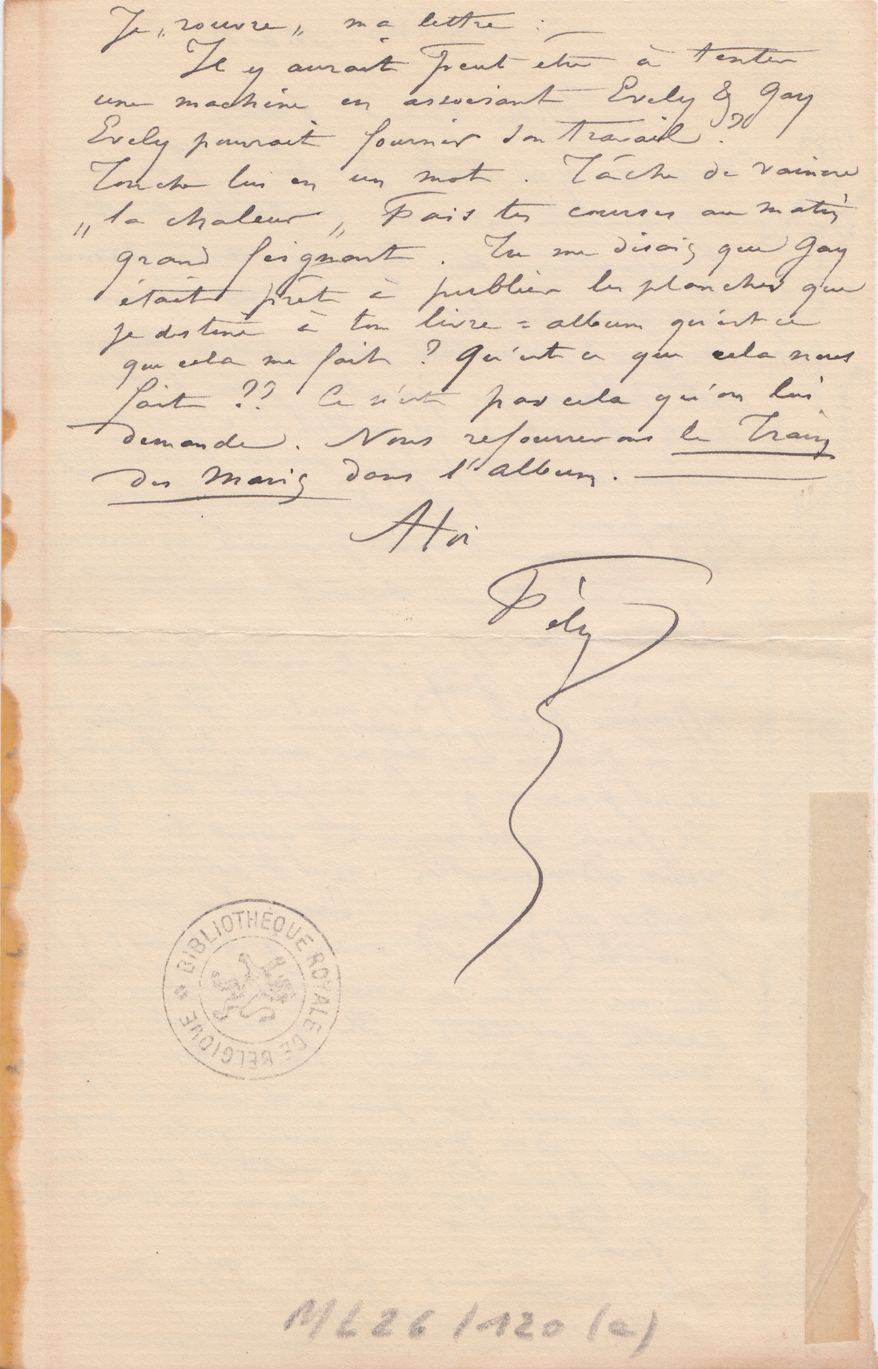 Je „rouvre„ ma lettre :
Il y aurait peut être à tenter
une machine en associant Evely & Gay
Evely pourrait fournir son travail ?
Touche lui en un mot. Tâche de vaincre
„la chaleur„ Fais tes courses au matin
grand feignant. Tu me disais que Gay
était prêt à publier les planches que
je destine à ton livre = album qu'est ce
que cela me fait ? Qu'est ce que cela nous
fait ?? Ce n'est pas cela qu'on lui
demande. Nous refourrerons le Train
des Maris dans l'album.
A toi
Fély
BIBLIOTHÈQUE ROYALE DE BELGIQUE *
ML26/120(a)